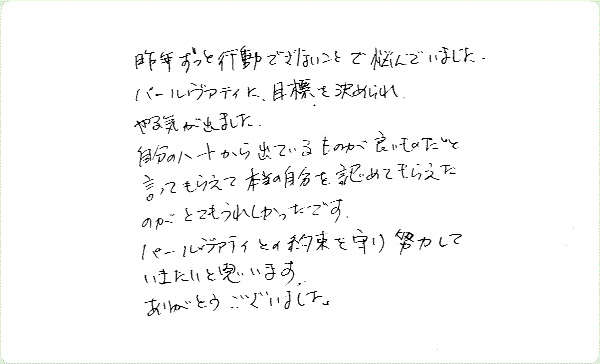 昨年ずっと行動できないことで悩んでいました.
パールヴァティに、目標を決められ.
やる気が出ました.
自分のハートから出ているものが良いものだと
言ってもらえて本当の自分を認めてもらえた
のがとてもうれしかったです.
パールヴァティとの約束を守り努力して
いきたいと思います.
ありがとうございました。